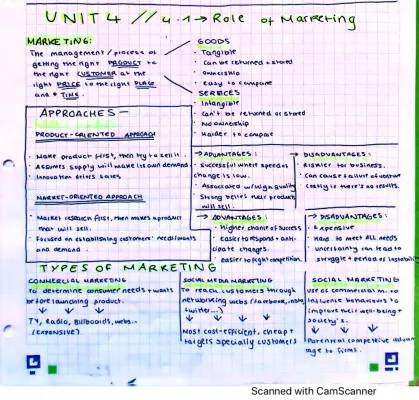 UNIT 4 // 4.1 → Role of Marketing
MARKETING:
The management/process of
getting the right PRODUCT to
the right CUSTOMER at the
right PRICE to the right PLACE
and TIME.
GOODS
· Tangible
· Can be returned or stored
· Ownership
· Easy to compare
SERVICES
· Intangible
· Can't be returned or stored
· No ownership
· Harder to compare
APPROACHES
PRODUCT-ORIENTED APPROACH
· Make product first, then try to sell it.
· Assumes supply will make its own demand.
· Innovation drives sales.
→ADVANTAGES:
· Successful where speed of
change is low.
· Associated w/ high quality
· Strong belief their product
will sell.
→ DISADVANTAGES:
· Riskier for business.
· Can cause failure of venture
costly if there's no results.
MARKET-ORIENTED APPROACH
· Market research first, then makes a product
that will sell.
· Focused on establishing customers' needs/wants
and demand.
→ ADVANTAGES:
· Higher chance of success
· easier to respond + anti-
cipate changes.
· easier to fight competition.
→ DISADVANTAGES:
· Expensive
· Hard to meet all needs
· uncertainty can lead to
struggle + period of instability
TYPES OF MARKETING
COMMERCIAL MARKETING
to determine consumer needs + wants
before launching product.
TV, Radio, Billboards, webs...
(EXPENSIVE)
SOCIAL MEDIA MARKETING
To reach customers through
networking webs (facebook, insta,
twitter...)
Most cost-efficient, cheap +
targets specially customers
SOCIAL MARKETING
use of commercial m. to
influence behaviours to
improve their well-being +
society's.
Potential competitive advan
tage to firms.
Scanned with CamScanner